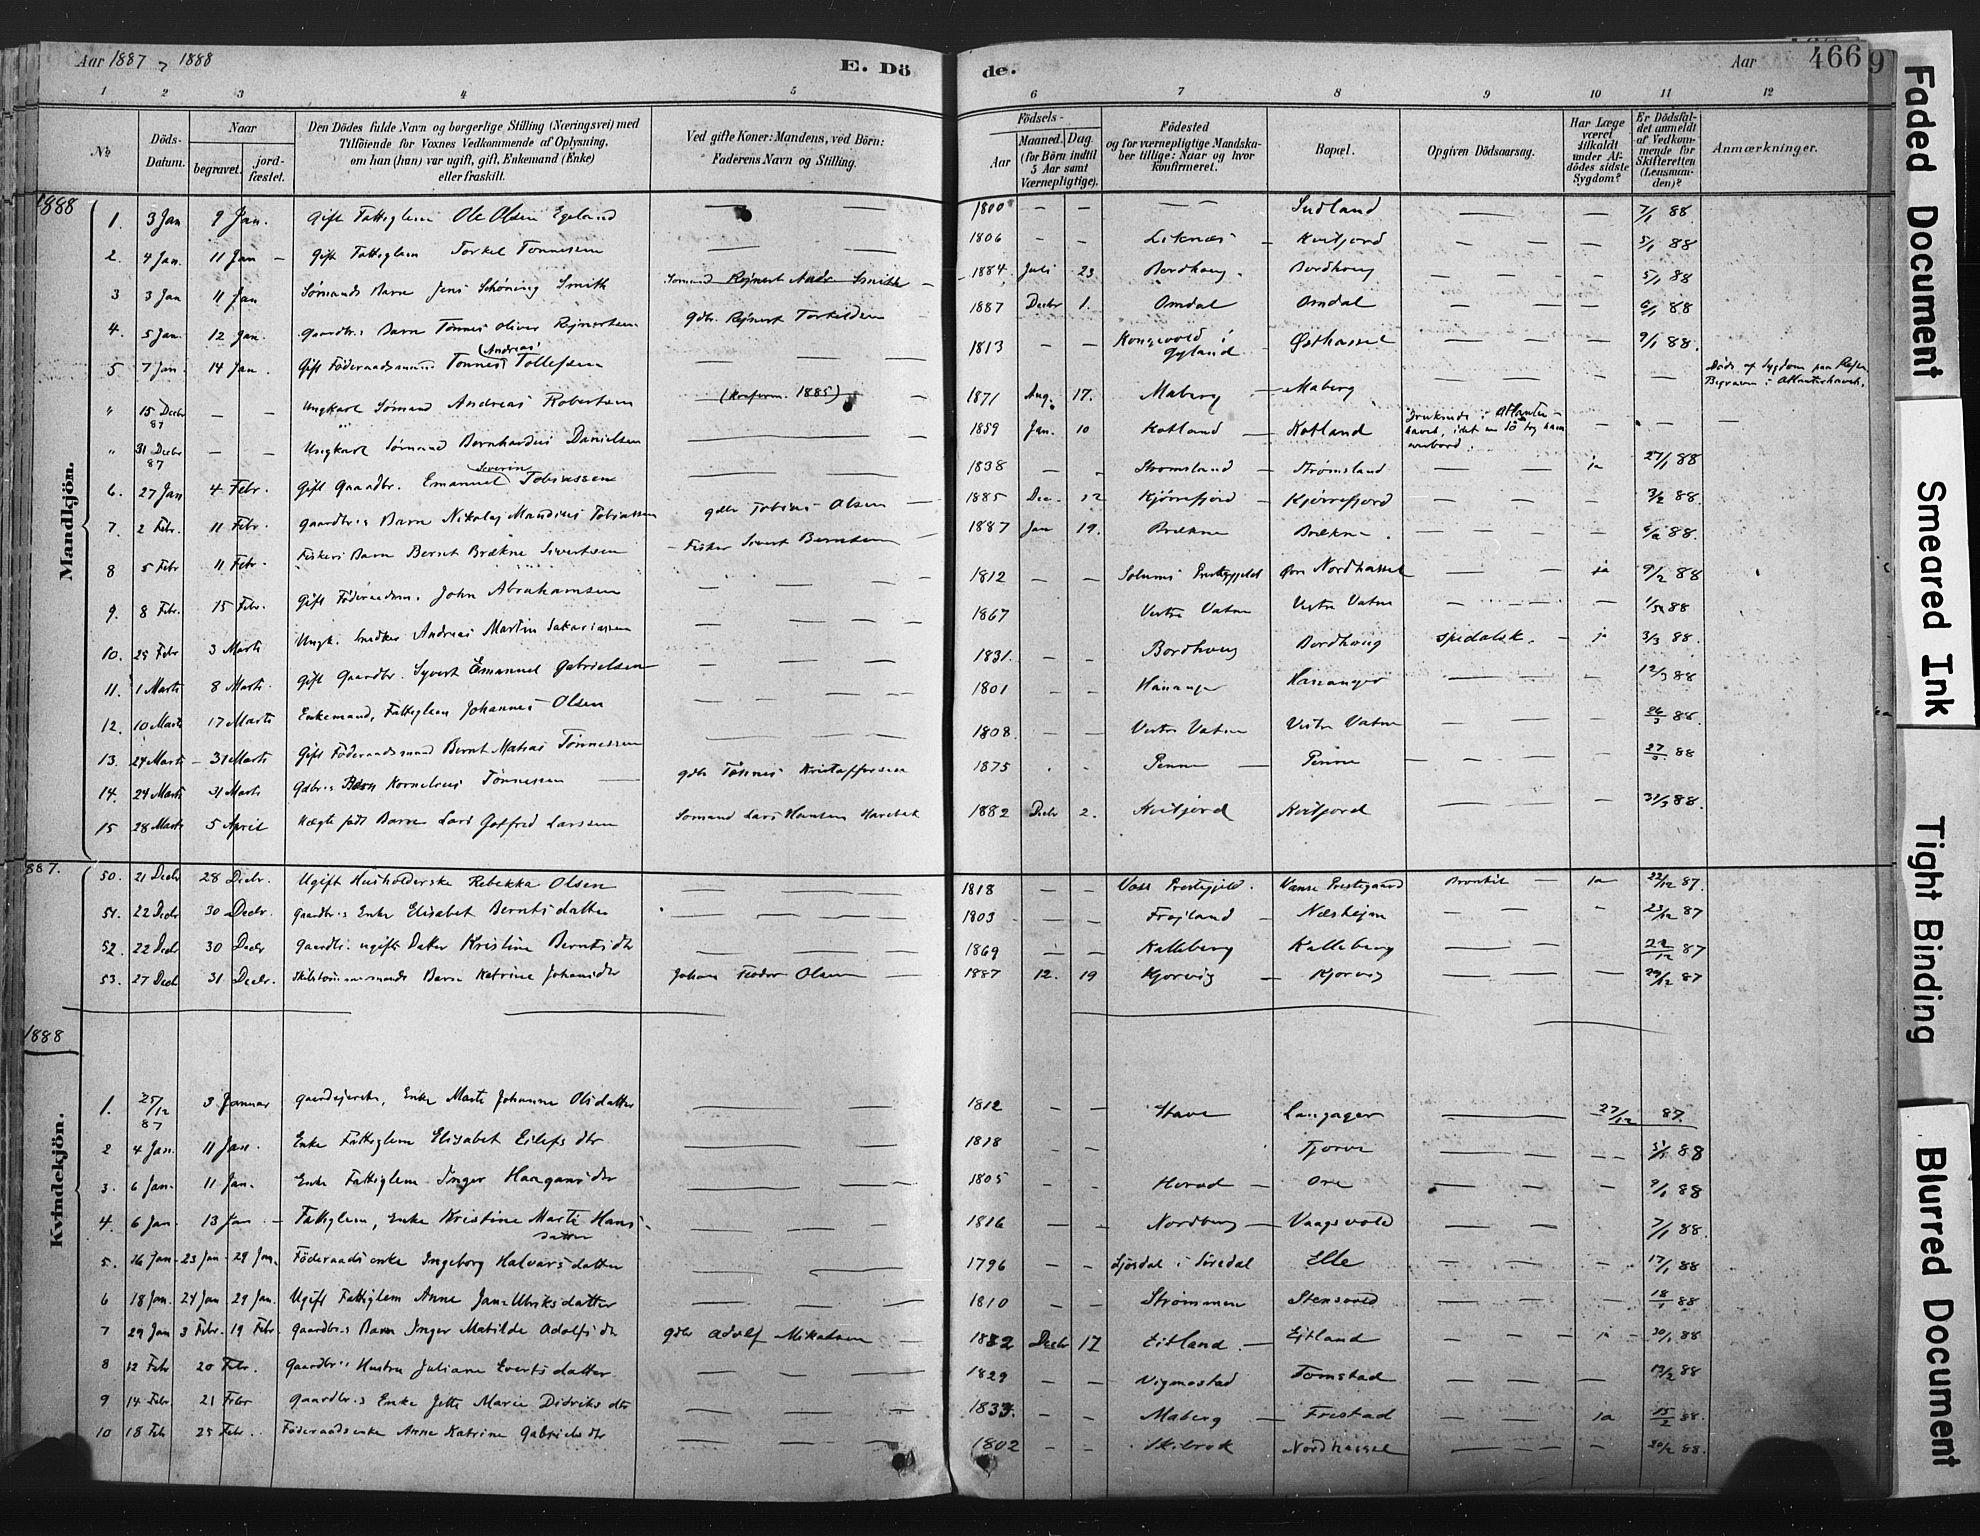 Aar 1887 , 1888
E. Dö
de.
Aar
466
9
1 2 3 4 5 6 7 8 9 10 11 12
No
Döds-Datum.
Naar
begravet. jordfæstet.
Den Dödes fulde Navn og borgerlige Stilling (Næringsvei) med
Tilföiende for Voxnes Vedkommende af Oplysning,
om han (hun) var ugift, gift, Enkemand (Enke)
eller fraskilt.
Ved gifte Koner: Mandens, ved Börn:
Faderens Navn og Stilling.
Födsels-
Aar
Maaned. Dag.
(for Börn indtil
5 Aar samt
Værnepligtige).
Födested
og for værnepligtige Mandska-
ber tillige: Naar og hvor
konfirmeret.
Bopæl.
Opgiven Dödsaarsag.
Har Læge
været
tilkaldt
under Af-
dödes sidste
Sygdom?
Er Dödsfal-
det anmeldt
af Vedkom-
mende for
Skifteretten
(Lensman-
den)?
Anmærkninger.
1888
Mandkjön.
1. 3 Jan 9 Jan. Gift Fattiglem Ole Olsen Egeland — — 1800 — — — Sudland — — 7/1 88
2. 4 Jan. 11 Jan — Gift Fattiglem Torkel Tonnessen — — 1806 — — Liknæs — Kvitfjord — — 5/1 88
3 3 Jan 11 Jan Sömands Barn Jens Schöning Smith Somand Rejnert Andr Smith — 1884. Juli 23. Bordhoug. Bordhoug — — 5/1 88
4. 5 Jan. 12 Jan. Gaardbr.s Barn Tönnes Oliver Rejnertsen Gdbr. Rejnert Torkildsen — 1887 Decbr 1. Omdal Omdal — — 6/1 88
5 7 Jan. 14 Jan. Gift Föderaadsmand Tonnes Andreas Tollefsen — — 1813 — — Kongevold i Gyland Østhassel — — 9/1 88.
" 15 Decbr 87 — — Ungkarl Sömand Andreas Robertsen (Konfirm. 1885) 1871 Aug. 17. Maberg — Maberg — — — Döde af Sygdom paa Rejsen. Begraven i Atlanterhavet.
" 31 Decbr 87 — — Ungkarl Sömand Bernhardus Danielsen — 1859 Jan. 10 Kotland — Kotland Druknede i Atlanterhavet, idet en Sö tog ham overbord. — — —
6. 27 Jan 4 Febr. Gift Gaardbr. Emanuel Severin Tobiassen — — 1838 — — Stromsland — Strömsland — ja 27/1 88
7. 2 Febr. 11 Febr. Gaardbr.s Barn Nikolaj Mandius Tobiassen Gdbr Tobias Olsen — 1885 Dec. 12 Kjörrefjord — Kjörrefjord — — 3/2 88.
8 5 Febr 11 Febr. Fiskers Barn Bernt Brækne Sivertsen — Fisker Sivert Berntsen — 1887 Jan 19. Brækne Brækne. — — 6/2 88.
9. 8 Febr. 15 Febr. Gift Föderaadsm. John Abrahamsen — — 1812 — — Solums Prestegjeld Nordhassel — ja 9/2 88
10. 25 Febr 3 Marts Ungk. Snedker Andreas Martin Sakariassen — — 1867 Vestre Vatne Vestre Vatne — — 88
11. 1 Marts 8 Marts. Gift Gaardbr. Syvert Emanuel Gabrielsen — — 1831. — — Bordhoug Bordhoug spedalsk. — ja 3/3 88.
12. 10 Marts 17 Marts Enkemand, Fattiglem Johannes Olsen — — 1801 — — Hananger Hananger — — 12/3 88
13. 24 Marts — 31 Marts Gift Föderaadsmand Bernt Matias Tönnessen — — 1808. — — Vestre Vatne Vestre Vatne — — 26/3 88.
14. 24 Marts 31 Marts Gdbr.s Barn Kornelius Tönnessen — Gdbr Tönnes Kristoffersen 1875 . . Penne — Penne — — 27/3. 88
15 28 Marts 5 April Uægte födt Barn Lars Gotfred Larssen Somand Lars Hansen Harebak 1882 Decbr 2. Kvitfjord Kvitfjord — — 31/3 88.
1887.
50. 21 Decbr 28 Decbr. Ugift Husholderske Rebekka Olsen — — 1818 — — Voss Prestegjeld. Vanse Prestegaard Bronkit — ja 22/12 87.
51. 22 Decbr 30 Decbr. Gaardbr.s Enke Elisabet Berntsdatter — — 1803 — — Frojland — Næsheim — — 23/12 87
52. 22 Decbr 30 Decbr Gaardbr.s ugifte Datter Kristine Berntsdtr — — 1869 — — Kalleberg Kalleberg — — 22/12 87
53. 27 Decbr 31 Decbr. Skibstömmermands Barn Katrine Johansdtr Johan Teodor Olsen — 1887 12. 19 Kjorvig — Kjorvig — — 29/12 87
1888
Kvindekjön.
1. 25/12 87 3 Januar Gaardejerske, Enke Marte Johanne Olsdatter — — 1812 — — Stave Langager — 27/12 87.
2 4 Jan. 11 Jan. Enke Fattiglem Elisabet Eilefsdtr — — 1818 — — Tjorve — — 5/1 88
3. 6 Jan. 11 Jan. Enke Fattiglem Inger Haagansdtr — — 1805 — — Herad — Ore — — 9/1 88
4. 6 Jan. 13 Jan — Fattiglem, Enke Kristine Marti Hansdatter — — 1816 — — Nordberg — Vaagsvold — — 7/1 88.
5. 16 Jan. 23 Jan — 29 Jan. Föderaadsenke Ingeborg Halvorsdatter — — 1796 — — i Siredal Elle — — 17/1 88
6 18 Jan. 24 Jan 29 Jan. Ugift Fattiglem Anne Jane Ulriksdatter — — 1810 — — Strömmen Stensvold — — 18/1 88
7 29 Jan 3 Febr. 19 Febr. Gaardbr.s Barn Inger Matilde Adolfsdtr Gdbr Adolf Mikalsen — 1882 Decbr 17 Eitland. — Ejtland — ja 30/1 88
8 12 Febr 20 Febr. Gaardbr.s Hustru Juliane Evertsdatter — — 1829 — — Vigmostad Tomstad — — 13/2 88
9 14 Febr 21 Febr Gaardbr.s Enke Jette Marie Didriksdtr — — 1833. — — Maberg — Frestad — ja 15/2 88.
10 18 Feb 25 Febr. Föderaadsenke Anne Katrine Gabrielsdtr — — 1802 — — Skibrok Nordhassel — — 20/2 88.
Faded Document
Smeared Ink
Tight Binding
Blurred Document